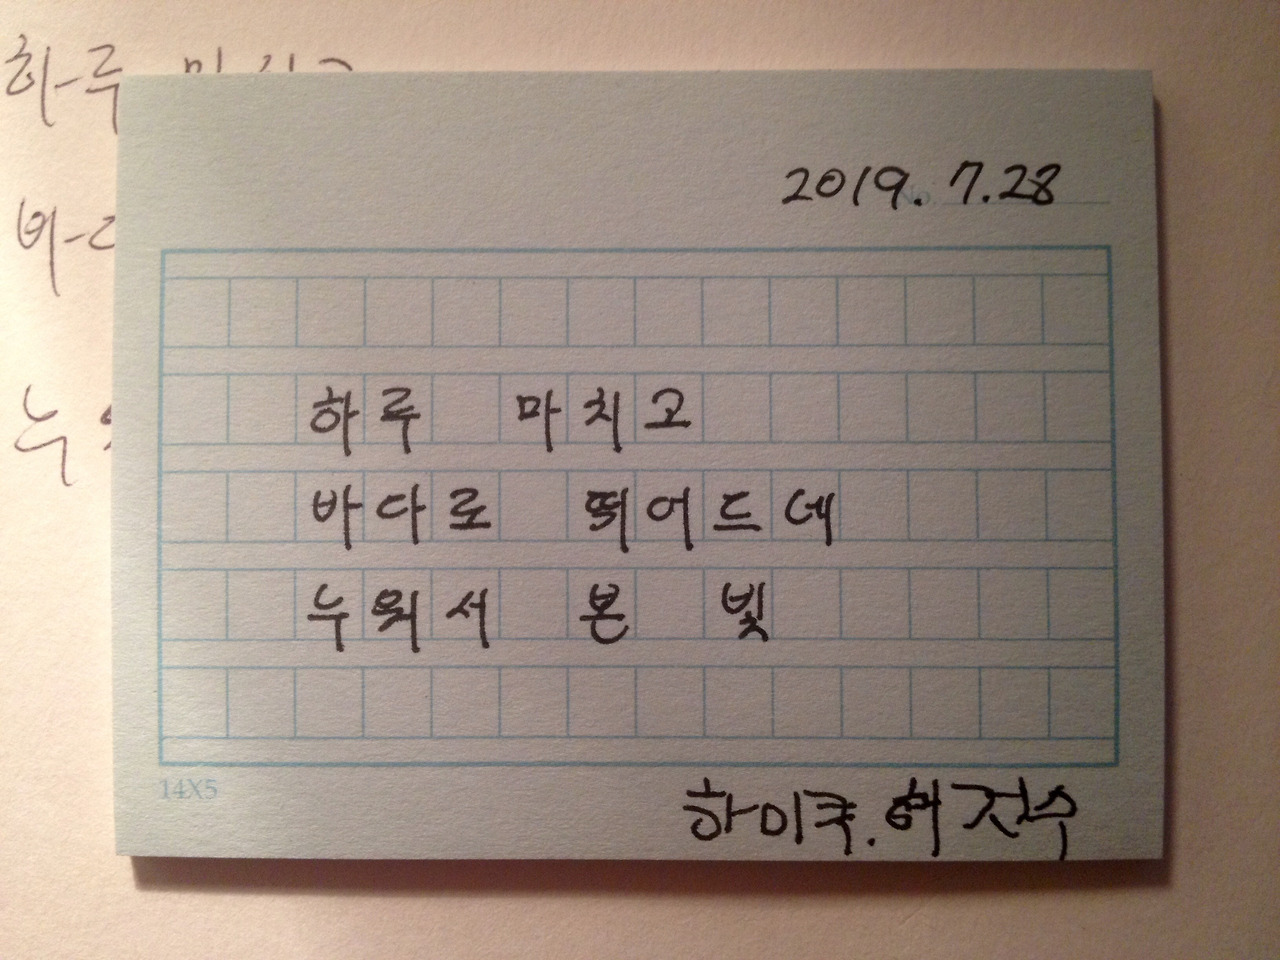 하루 마
2019. 7.28
No.
하루 마치고
바다로 뛰어드네
누워서 본 빛
14X5
하이쿠. 허전수